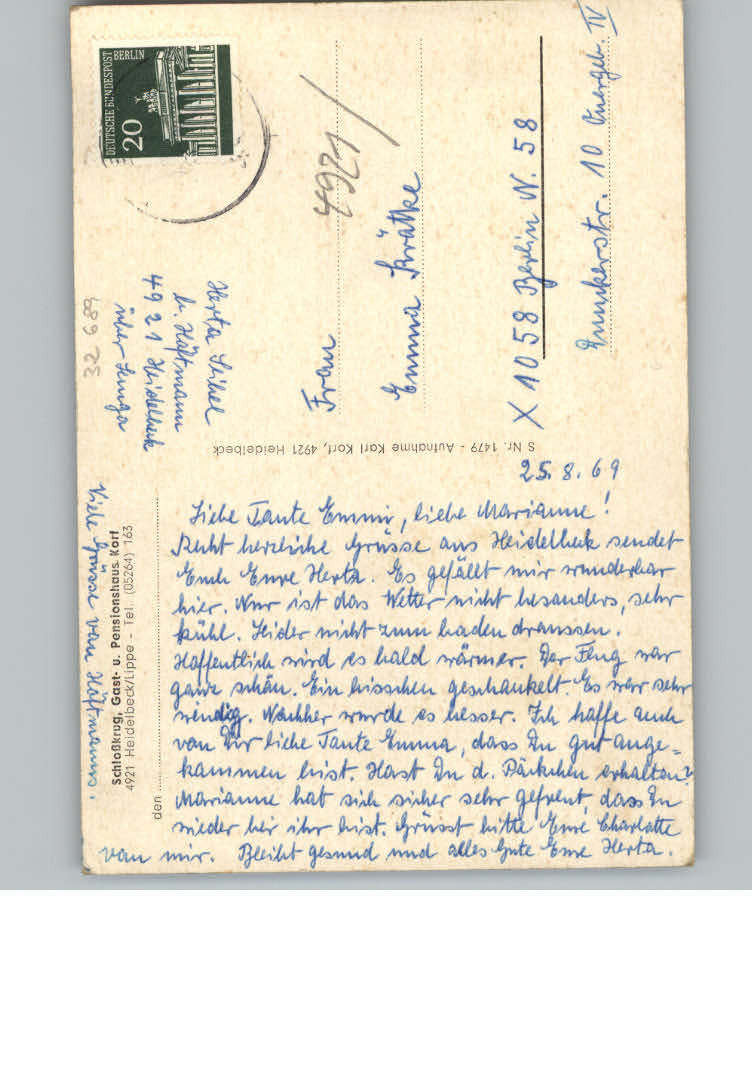 DEUTSCHE BUNDESPOST
BERLIN
20
32 689
Herta Seibel
b. Höftmann
4921 Heidelbeck
über Lemgo
4921
Frau
Emma Krätke
X 1058 Berlin N. 58
Dunckerstr. 10 Quergeb. IV
S Nr. 1479 - Aufnahme Karl Korf, 4921 Heidelbeck
Schloßkrug, Gast- u. Pensionshaus Korf
4921 Heidelbeck/Lippe - Tel. (05264) 163
den
25.8.69
Liebe Tante Emmi, liebe Marianne!
Recht herzliche Grüsse aus Heidelbeck sendet
Euch Eure Herta. Es gefällt mir wunderbar
hier. Nur ist das Wetter nicht besonders, sehr
kühl. Leider nicht zum baden draussen.
Hoffentlich wird es bald wärmer. Der Flug war
ganz schön. Ein bisschen geschaukelt. Es war sehr
windig. Nachher wurde es besser. Ich hoffe auch
von Dir liebe Tante Emma, dass Du gut ange=
kommen bist. Hast Du d. Päckchen erhalten?
Marianne hat sich sicher sehr gefreut, dass Du
wieder bei ihr bist. Grüsst bitte Eure Charlotte
von mir. Bleibt gesund und alles Gute Eure Herta.
Viele Grüsse von Höftmanns.